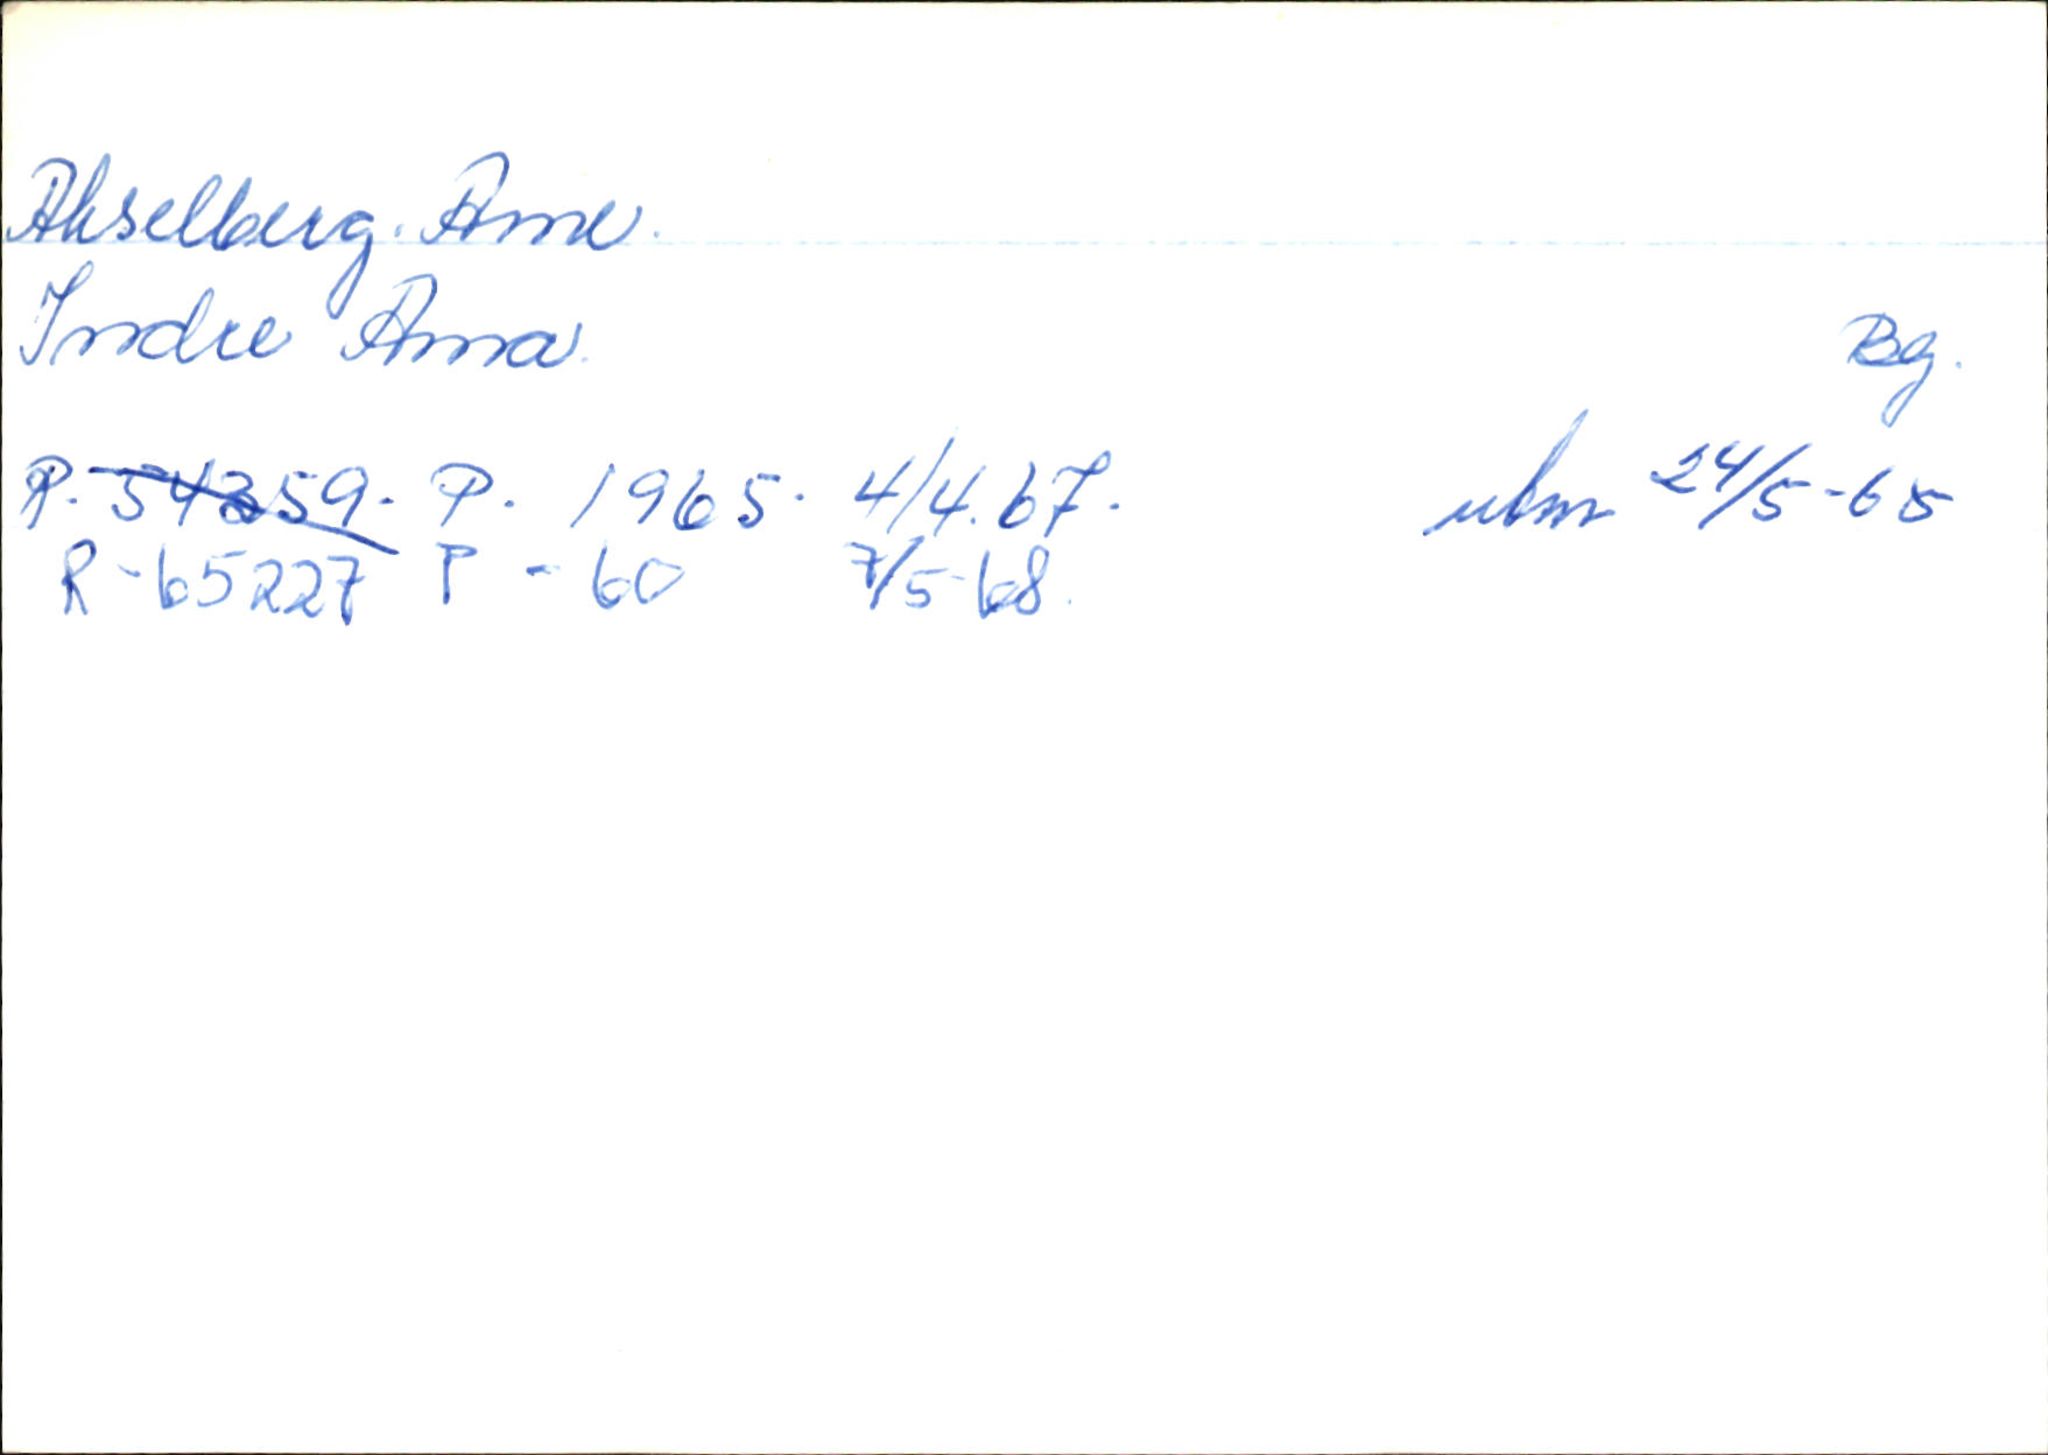 Akselberg. Arne.
Indre Arna. Bg.
R. 54359. P. 1965. 4/4.67. ubm 24/5-65
R-65227 P - 60 7/5-68.